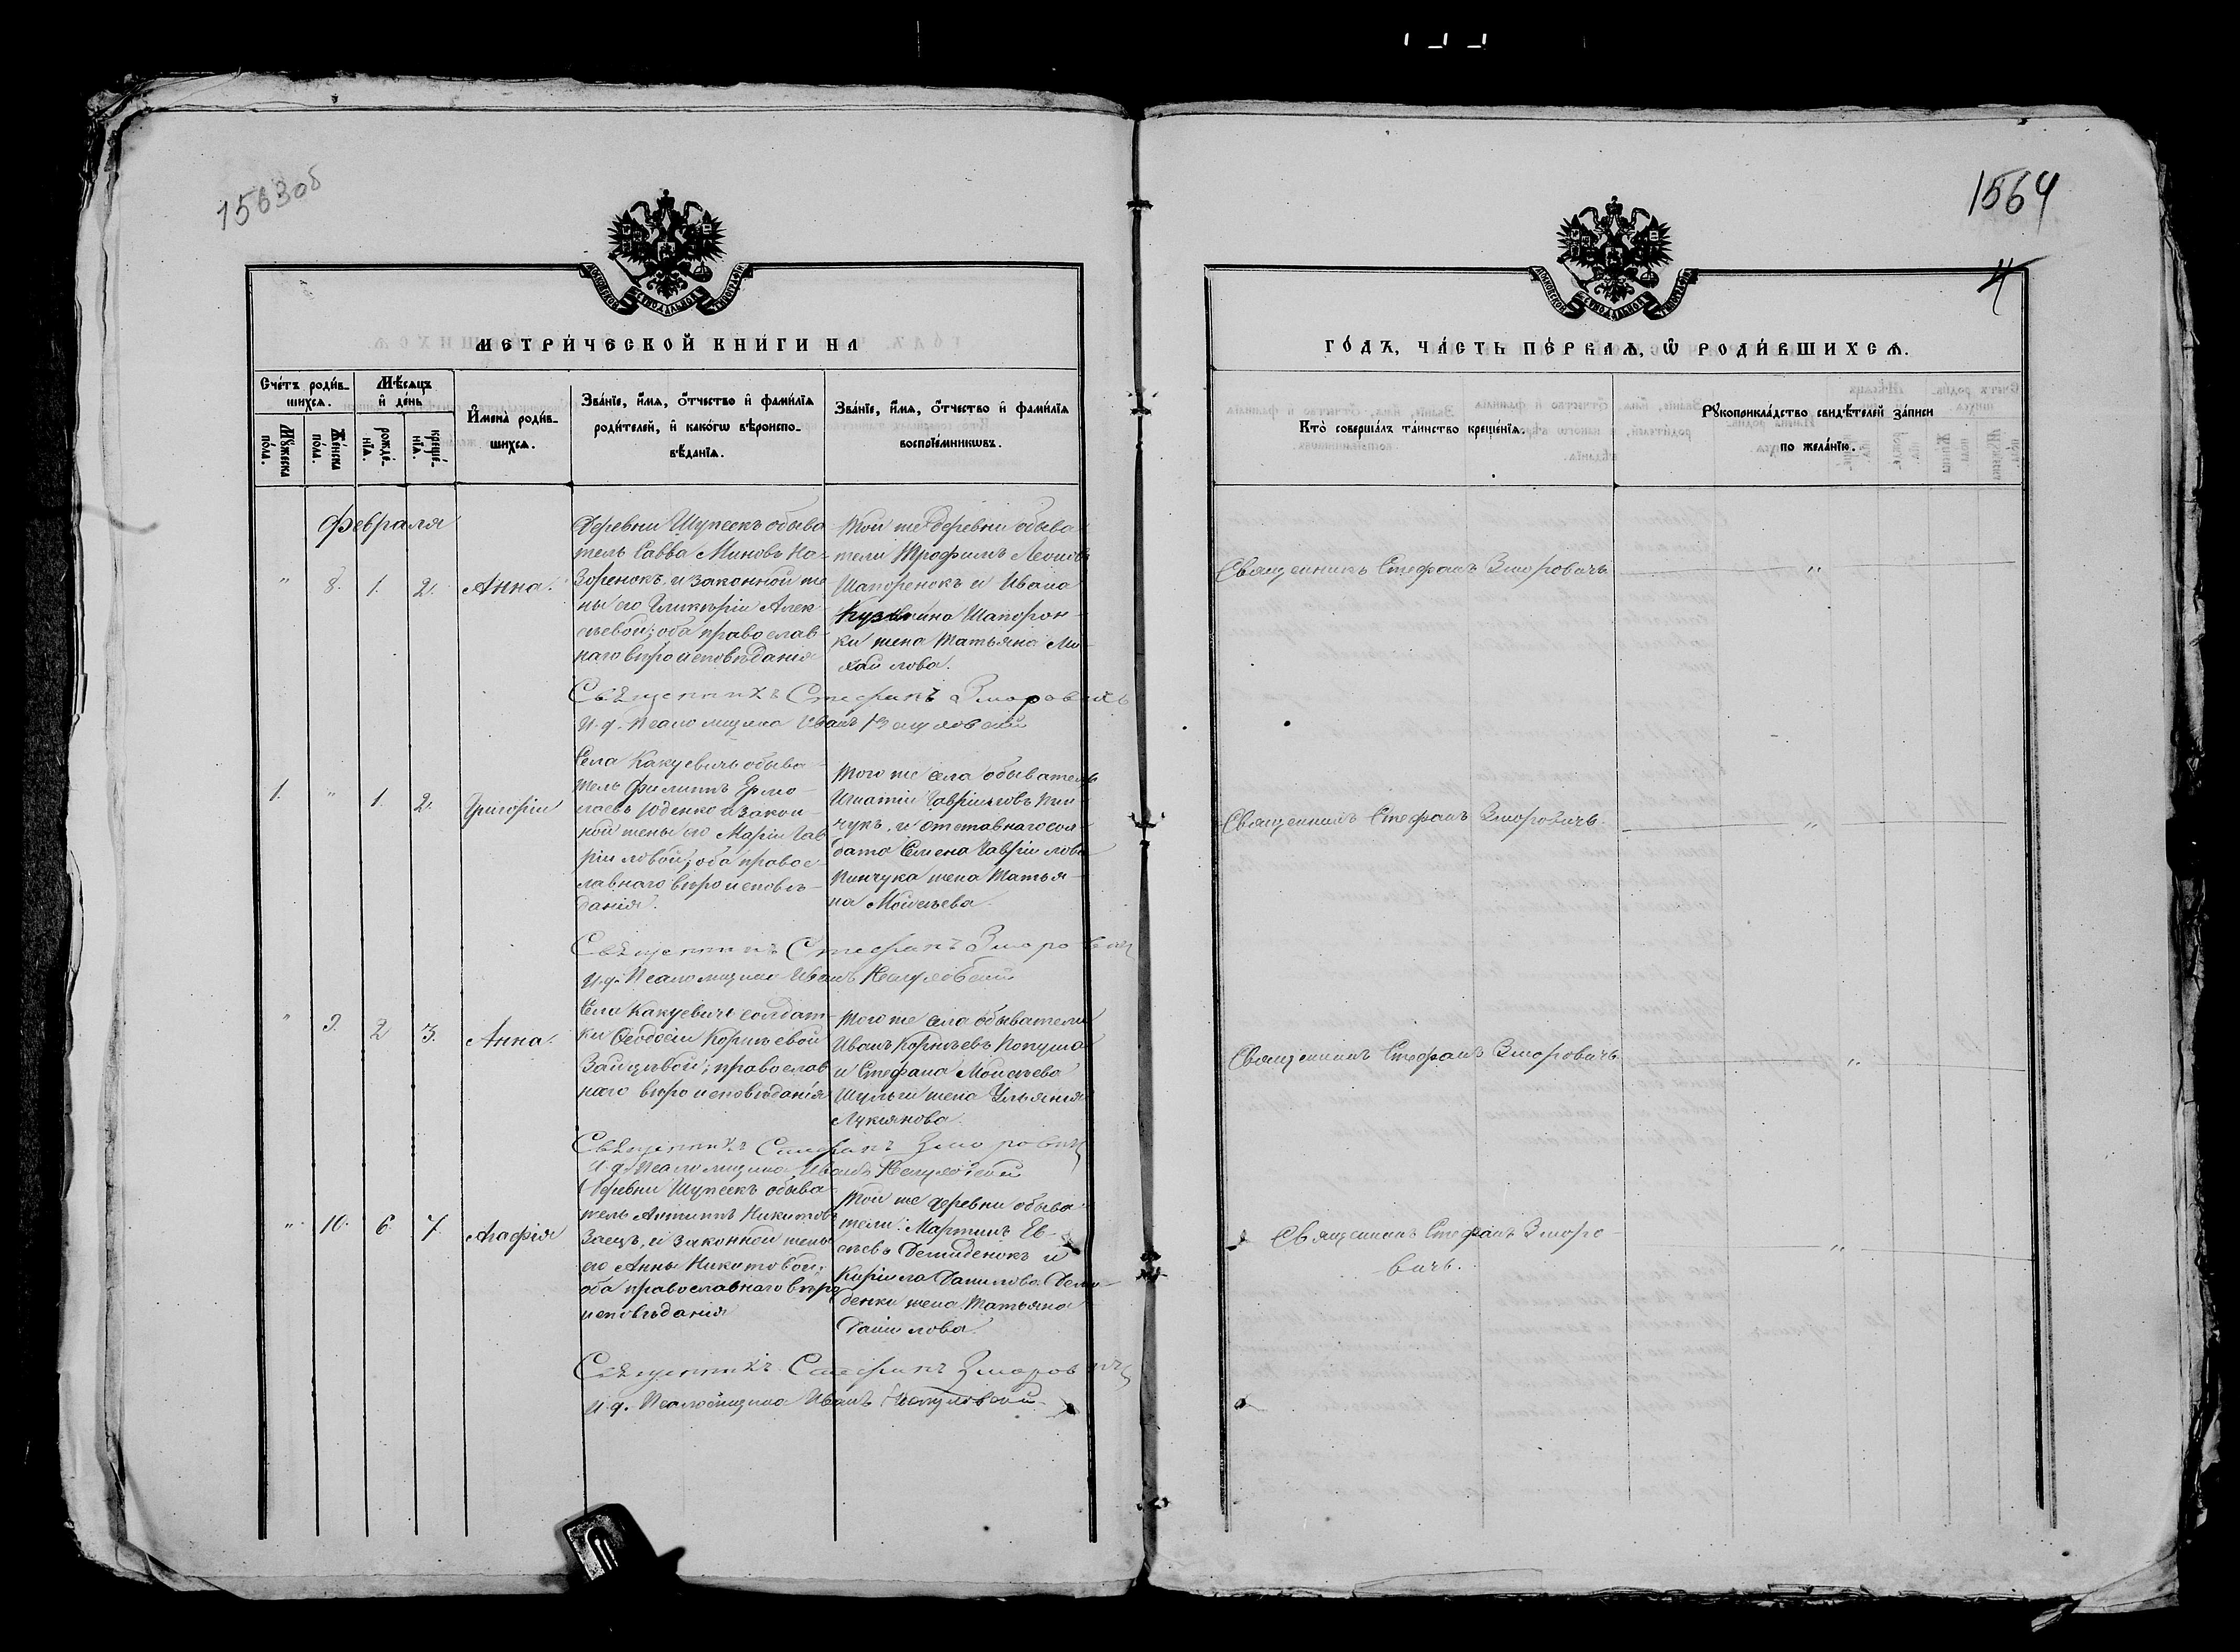 1563об
1564
4
МОСКОВСКОЙ СѴНОДАЛЬНОЙ ТИПОГРАФІИ
МОСКОВСКОЙ СѴНОДАЛЬНОЙ ТИПОГРАФІИ
МЕТРИ́ЧЕСКОЙ КНИ́ГИ НА
Сче́тъ роди́в-
шихсѧ.
Мѣ́сѧцъ
и҆ де́нь
Мꙋ́жеска
по́ла.
Же́нска
пола.
рожде́-
нїѧ.
креще́-
нїѧ.
И҆мена̀ роди́в-
шихсѧ.
Зва́нїе, и҆́мѧ, ѻ҆́тчество и҆ фами́лїѧ
роди́телей, и҆ како́гѡ вѣроиспо-
вѣ́данїѧ.
Зва́нїе, и҆́мѧ, ѻ҆́тчество и҆ фами́лїѧ
воспрїе́мникѡвъ.
Февраля
" 8. 1. 2. Анна.
Деревни Шупеекъ обыва
тель Савва Миновъ На-
зоренокъ и законной же
ны его Гликѣріи Алек
сѣевой; оба православ-
наго вѣроисповѣданія
Той же деревни обыва
тели Трофимъ Леонов
Шапоренокъ и Ивана
Кузмина Шапорен-
ки жена Татьяна Ми-
хайлова.
Священникъ Стефанъ Зморовичъ
И. д. Псаломщика Иванъ
1. " 1. 2. Григорій
Села Какуевичъ обыва-
тель Филиппъ Ермо-
лаевъ Юденко и закон-
ной жены его Маріи Гав
ріиловой; оба правос-
лавнаго вѣроисповѣ-
данія.
Того же села обыватель
Игнатій Гавріиловъ Пин
чукъ, и отставнаго сол-
дата Семена Гавріилова
Пинчука жена Татья-
на Моисѣева.
Священникъ Стефанъ Зморович
И. д. Псаломщика Иванъ
" 9. 2 3. Анна.
Села Какуевичъ солдат-
ки Ѳеодосіи Корнѣевой
Зайцѣвой; православ
наго вѣроисповѣданія
Того же села обыватели
Иванъ Корнѣевъ Попуша
и Стефана Моисѣева
Шульги жена Ульянія
Лукіянова.
Священникъ Стефанъ Зморовичъ
И. д. Псаломщика Иванъ
" 10. 6 7. Агафія
Деревни Шупеекъ обыва-
тель Антипъ Никитовъ
Заецъ, и законной жены
его Анны Никитовой;
оба православнаго вѣро
исповѣданія
Той же деревни обыва-
тели: Мартинъ Ев-
сѣевъ Демиденокъ и
Киріила Данилова Деми-
денки жена Татьяна
Данилова.
Священникъ Стефанъ Зморовичъ
И. д. Псаломщика Иванъ
ГО́ДЪ, ЧА́СТЬ ПЕ́РВАѦ, Ѡ҆ РОДИ́ВШИХСѦ.
Кто̀ соверша́лъ та́инство креще́нїѧ.
Рꙋкоприкла́дство свидѣ́телей за́писи
по жела́нїю.
Священникъ Стефанъ Зморовичъ "
Священникъ Стефанъ Зморовичъ. "
Священникъ Стефанъ Зморовичъ "
Священникъ Стефанъ Зморо- "
вичъ.